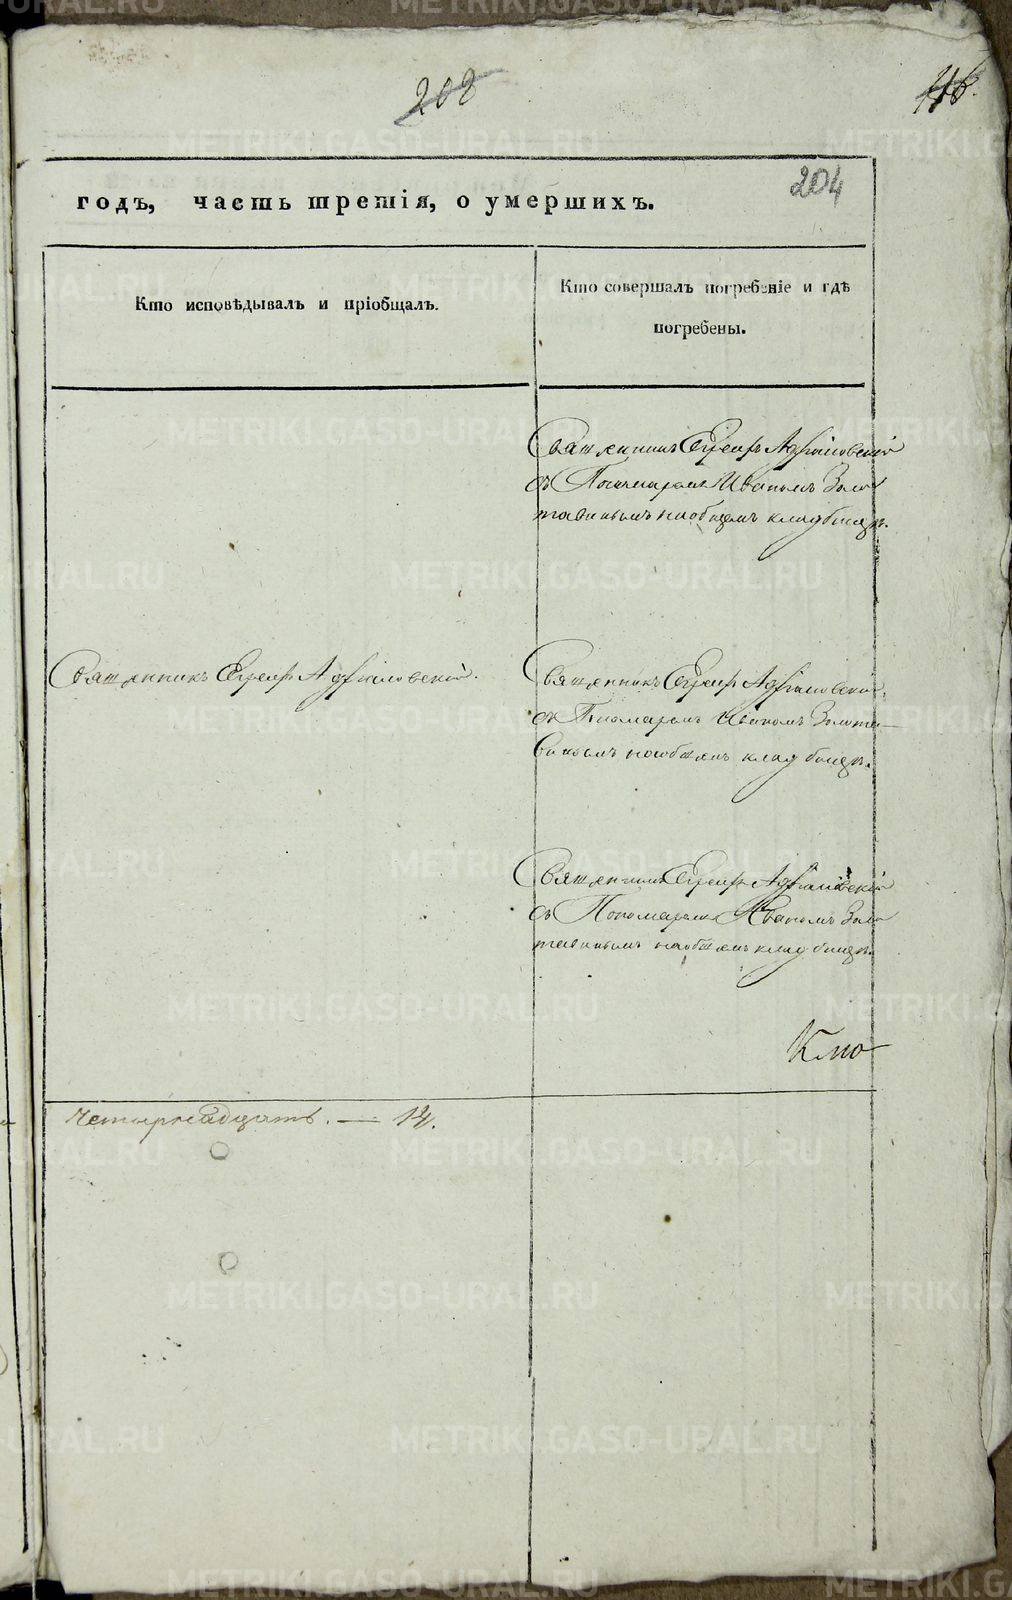 202
116.
204
годъ, часть третія, о умершихъ.
Кто исповѣдывалъ и пріобщалъ.
Кто совершалъ погребеніе и гдѣ
погребены.
Священникъ Егоръ Адріановскій
съ Пономаремъ Иваномъ Золо
тавинымъ на общемъ кладбищѣ.
Священникъ Егоръ Адріановскій.
Священникъ Егоръ Адріановскій,
съ Пономаремъ Иваномъ Золота-
винымъ на общемъ кладбищѣ.
Священникъ Егоръ Адріановскій
съ Пономаремъ Иваномъ Золо
тавинымъ на общемъ кладбищѣ.
Кто
Четырнадцать. — 14.
METRIKI.GASO-URAL.RU